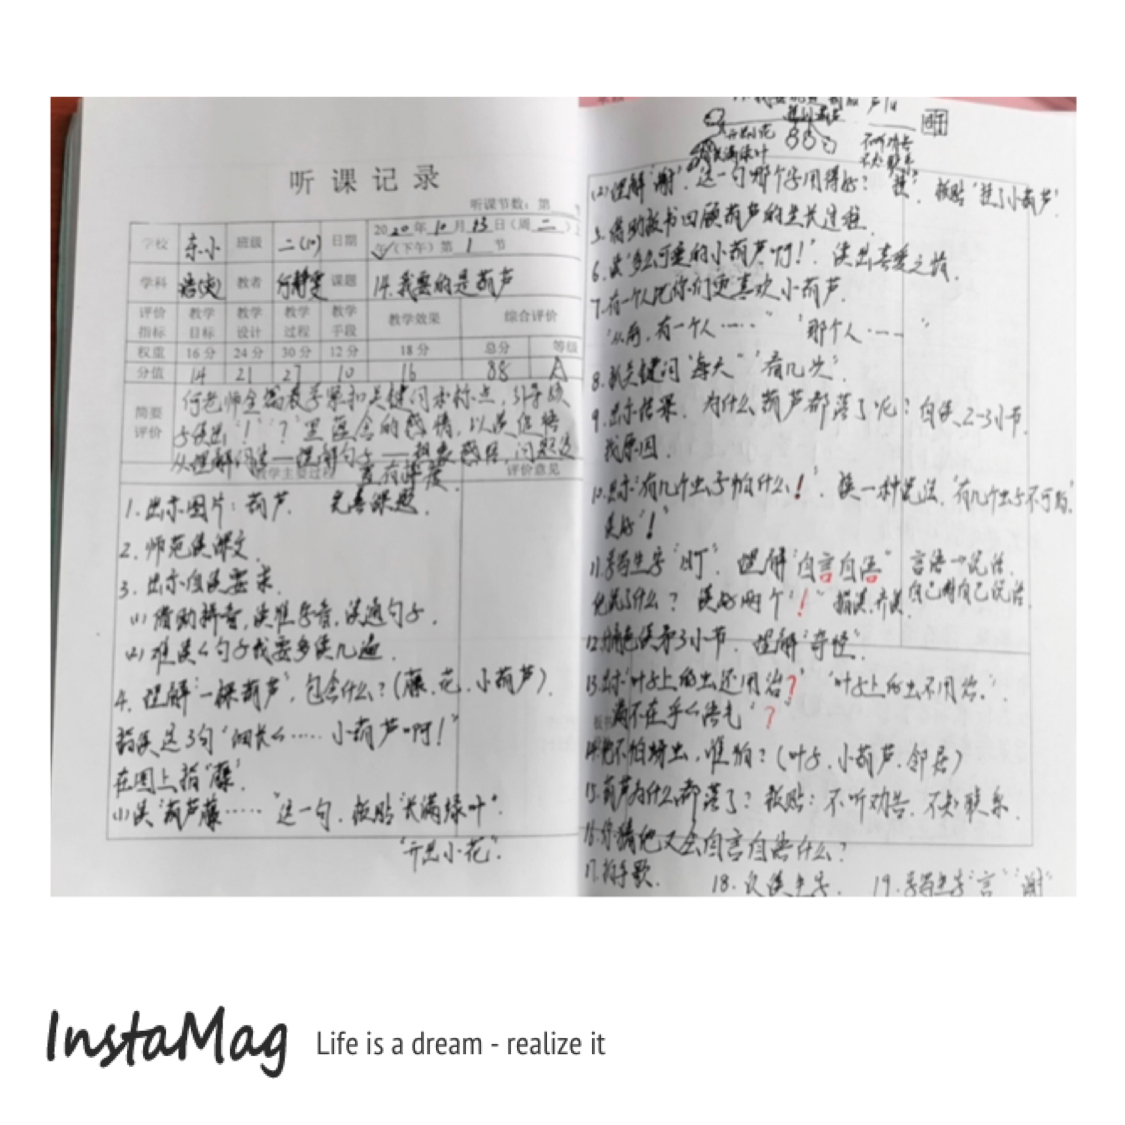 听课记录
听课节数：第
学校 东小 班级 二(10) 日期 2020年10月13日（周二）
（下午）第 1 节
学科 语(文) 教者 何静雯 课题 14.我要的是葫芦
评价指标 教学目标 教学设计 教学过程 教学手段 教学效果 综合评价
权重 16分 24分 30分 12分 18分 总分 等级
分值 14 21 27 10 16 88 A
简要评价
何老师 关键词和标点，引导孩
子读出"！""？"里蕴含的感情，以读促悟
从理解词 —理解句子— 感悟，问题设
置有梯度.
教学主要过程 评价意见
1.出示图片：葫芦. 完善课题.
2.师范读课文.
3.出示自读要求
(1)借助拼音,读准字音,读通句子.
(2)难读的句子我要多读几遍.
4.理解"一棵葫芦".包含什么？(藤.花.小葫芦).
指读这3句"细长的……小葫芦啊！"
在图上指"藤".
(1)读"葫芦藤……"这一句.板贴"长满绿叶".
"开出小花".
开出小花
长满绿叶
不听劝告
不知联系
(2)理解"谢".这一句哪个字用得好？"挂".板贴"挂了小葫芦".
5.借助板书回顾葫芦的生长过程.
6.读"多么可爱的小葫芦啊！".读出喜爱之情.
7.有一个人比你们更喜欢小葫芦.
"从前,有一个人……" "那个人……"
8.抓关键词"每天""看几次".
9.出示结果.为什么葫芦都落了呢？自读2-3小节.
找原因.
10.出示"有几个虫子怕什么！".换一种说法."有几个虫子不可怕."
读好"！"
11.写生字"盯".理解"自言自语" 言语→说话.
自己对自己说话.
他说了什么？读好两个"！" 指读.齐读
12.分角色读第3小节.理解"奇怪".
13.出示"叶子上的虫还用治？" "叶子上的虫不用治."
满不在乎的语气"？"
14.他不怕蚜虫,谁怕？(叶子.小葫芦.邻居)
15.葫芦为什么都落了？板贴：不听劝告.不知联系.
16.你猜他又会自言自语什么？
17.拍手歌. 18.认读生字. 19.写生字"言""谢"
InstaMag Life is a dream - realize it